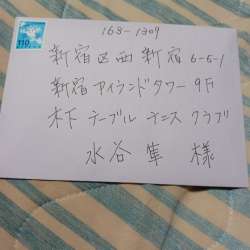 110
163-1309
新宿区西新宿6-5-1
新宿アイランドタワー9F
木下テーブルテニスクラブ
水谷隼 様